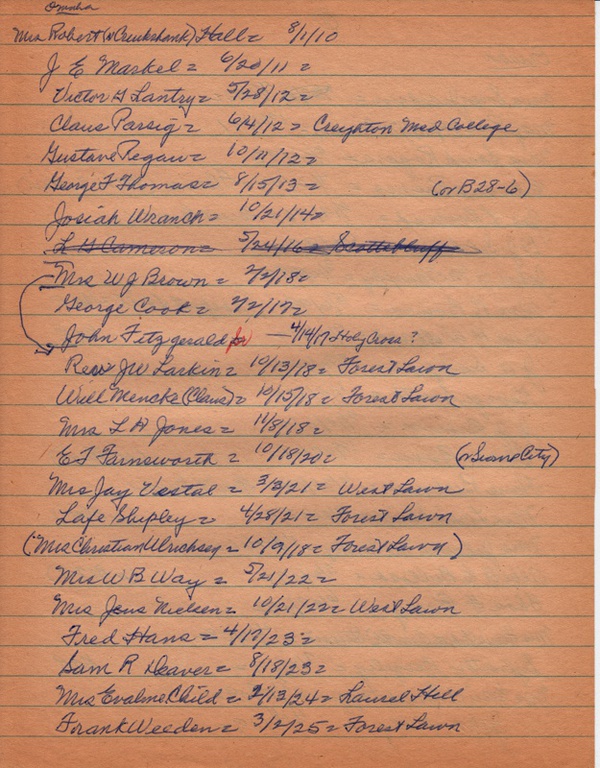 Omaha
Mrs Robert (n Cruikshank) Hall = 8/1/10
J E Markel = 6/20/11 =
Victor G Lantry = 5/28/12 =
Claus Parsig = 6/4/12 = Creighton Med College
Gustave Pegau = 10/11/12 =
George F Thomas = 8/15/13 = (or B28-6)
Josiah Wranch = 10/21/14 =
L G Cameron = 5/24/16 = Scottsbluff
Mrs W J Brown = 2/2/18 =
George Cook = 2/2/17 =
John Fitzgerald Jr — 4/14/17 Holy Cross ?
Rev JW Larkin = 10/13/18 = Forest Lawn
Will Mencke (Claus) = 10/15/18 = Forest Lawn
Mrs L A Jones = 11/8/18 =
E T Farnsworth = 10/18/20 = (n Sioux City)
Mrs Jay Vestal = 3/3/21 = West Lawn
Lafe Shipley = 4/28/21 = Forest Lawn
(Mrs Christian Ulrichsen = 10/9/18 = Forest Lawn)
Mrs W B Way = 5/21/22 =
Mrs Jens Nielsen = 10/21/22 = West Lawn
Fred Hans = 4/17/23 =
Sam R Deaver = 8/18/23 =
Mrs Evaline Child = 2/13/24 = Laurel Hill
Frank Weeden = 3/2/25 = Forest Lawn